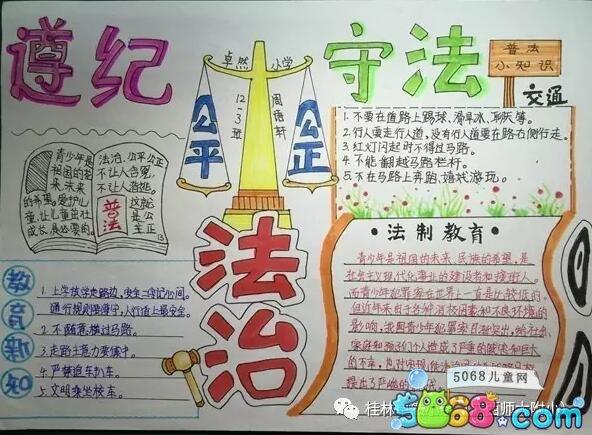 遵纪
守法
卓然小学
12-3班
周语轩
公平
公正
普法
小知识
交通
1.不要在道路上踢球、滑旱冰、聊天等。
2.行人要走行人道,没有行人道要在路右侧行走。
3.红灯闪起时不得过马路。
4.不能翻越马路栏杆。
5.不在马路上奔跑、嬉戏游玩。
青少年是
祖国的花
朵,未来
的希望。爱护儿
童,让儿童茁壮
成长,是必要的。
法治,公平公正
不让人含冤,
不让人
普法
这就
是公
正
法治
教育新知
1.上学放学走路边,安全二字记心间。
通行规则要遵守,人行道上最安全。
2.不随意横过马路。
3.走路注意力要集中。
4.严禁追车扒车。
5.文明乘坐校车。
·法制教育·
青少年是祖国的未来,民族的希望,是
社会主义现代化事业的建设者和接班人。
而青少年犯罪率在世界上一直是比较低的,
但近年来由于各种消极因素和不良环境的
影响,我国青少年犯罪率日渐突出,给社会、
家庭和孩子们个人造成了严重的破坏和巨大
的不幸,
5068儿童网
5068.com
桂林